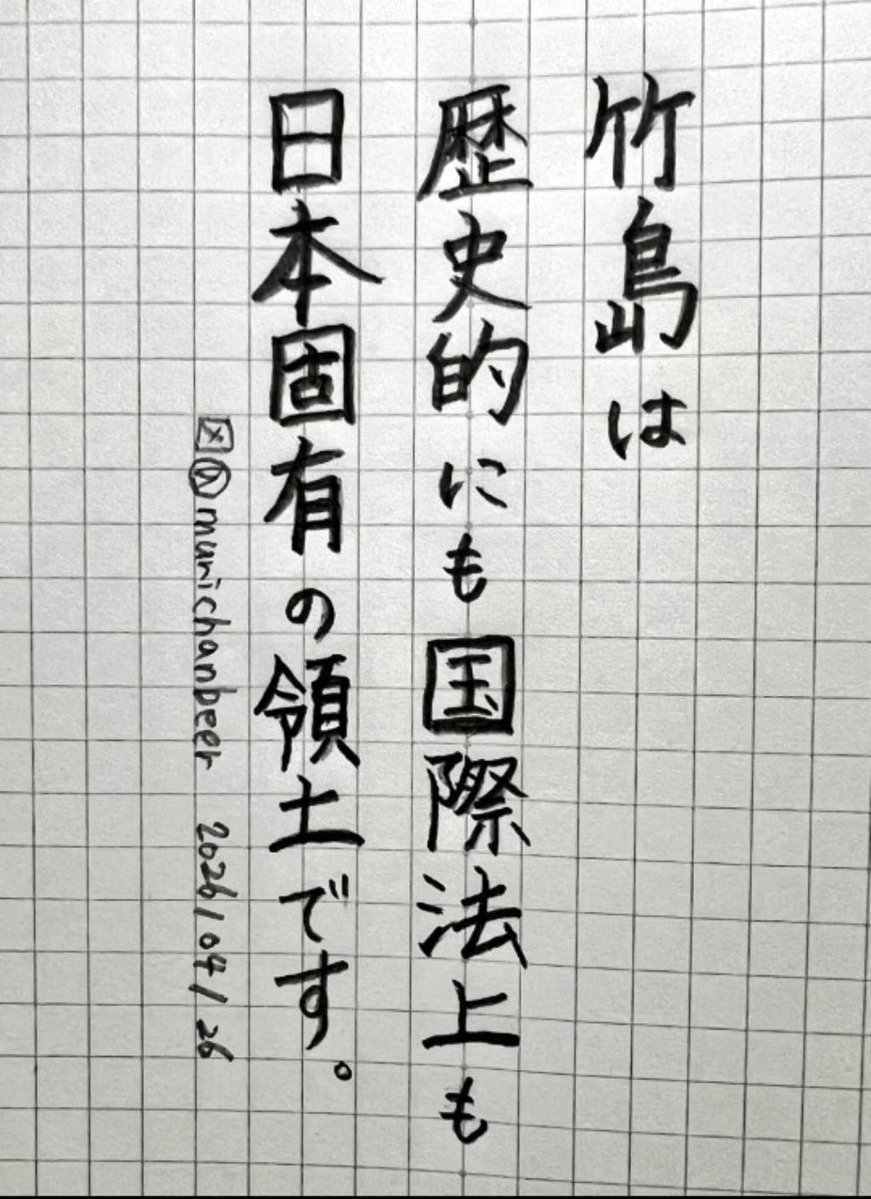 竹島は
歴史的にも国際法上も
日本固有の領土です。
X @munichanbeer 2026/04/26